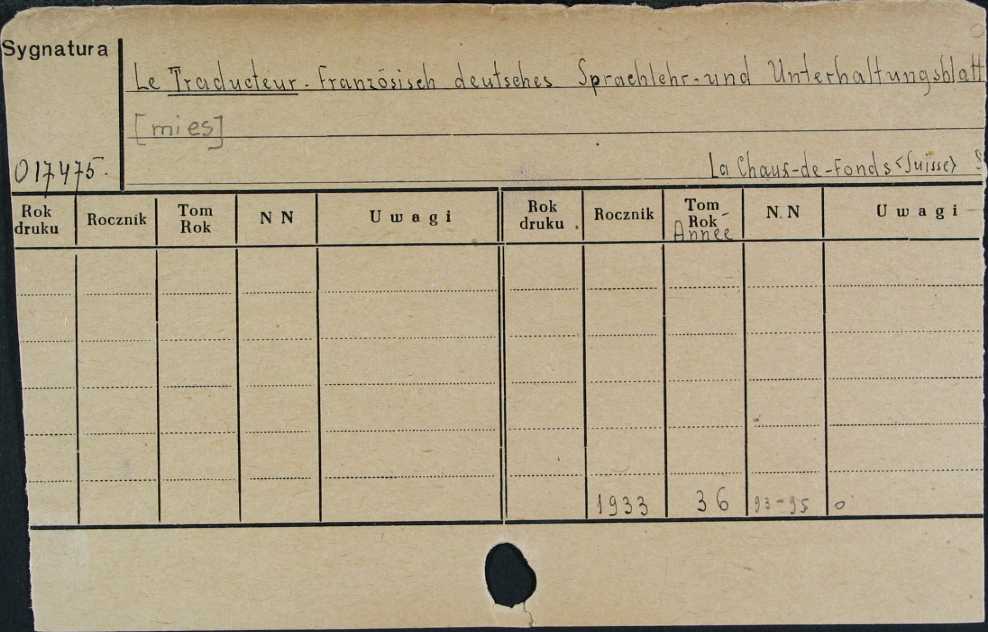 Sygnatura
Le Traducteur. französisch deutsches Sprachlehr-und Unterhaltungsblatt
[mies]
017475.
La Chaus-de-Fonds <Suisse> S
Rok druku Rocznik Tom Rok N N Uwagi Rok druku Rocznik Tom Rok Année N. N Uwagi
1933 36 93-95 0